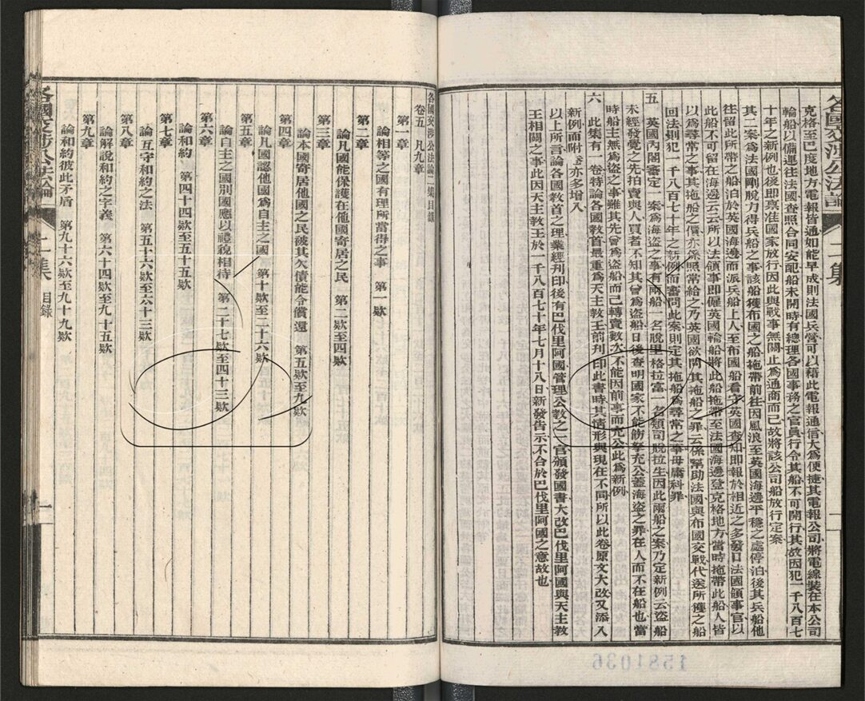 克格至巴度地方電報皆通如能早成則法國兵營可以藉此電報通信大為便捷其電報公司將電線裝在本公司
輪船以備運往法國查照合同安配船未開時有總理各國事務之官員行令其船不可開行其故因犯一千八百七
十年之新例也後即裁准國家放行因此與戰事無關止為通商而已故將該公司船放行定案
其二案為法國剛脫力得兵船之事該船獲布國之船拖帶前往因風浪至英國海邊平穩之處停泊後其兵船他
往留此所帶之船泊於英國海邊而派兵船上人至布國船看守英國查知即報於相近之多發口法國領事官以
此船不可留在海邊云云所以法領事即僱英國輪船將此船拖帶至法國海邊登克格地方當時拖帶此船人皆
以為尋常之事其拖船之價亦照常給之乃英國欲問其拖船之罪云係幫助法國與布國交戰代送所獲之船
回法則犯一千八百七十年之新例而審問此案則定其拖船為尋常之事毋庸科罪
五　英國內閣審定一案為海盜之事有兩船一名脫里格拉富一名領司脫拉生因此兩船之案乃定新例云盜船
未經發覺之先拍賣與人買者不知其曾為盜船日後查明國家不能飭拏充公蓋海盜之罪在人而不在船也當
時船主無為盜之事雖其先曾為盜船而已轉賣數次不能因前事而充公此為新例
六　此集有一卷特論各國教首最重為天主教王前刊印此書時其情形與現在不同所以此卷原文大改又添入
新例而附卷亦多增入
以上所言論各國教首之理業經刊印後有巴伐里阿國管理公教之一官頒發國書大改巴伐里阿國與天主教
王相關之事此因天主教王於一千八百七十年七月十八日新發告示不合於巴伐里阿國之意故也
各國交涉公法論　二集　一
1581036
各國交涉公法論二集目錄
卷五　凡九章
第一章
論相等之國有理所當得之事　第一欵
第二章
論凡國能保護在他國寄居之民　第二欵至四欵
第三章
論本國寄居他國之民被其欠債能令償還　第五欵至九欵
第四章
論凡國認他國為自主之國　第十欵至二十六欵
第五章
論自主之國別國應以禮貌相待　第二十七欵至四十三欵
第六章
論和約　第四十四欵至五十五欵
第七章
論互守和約之法　第五十六欵至六十三欵
第八章
論解說和約之字義　第六十四欵至九十五欵
第九章
論和約彼此矛盾　第九十六欵至九十九欵
各國交涉公法論　二集　目錄　一